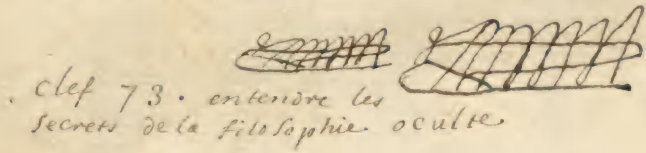 . clef 73. entendre les
secrets de la filosophie. oculte.